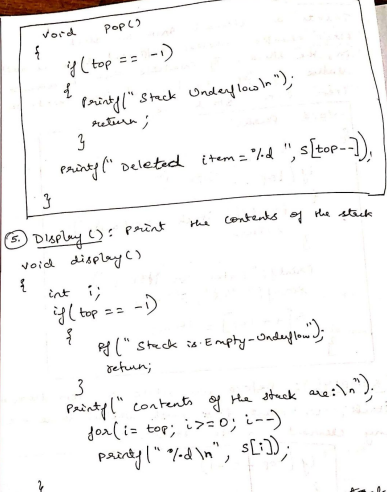 void Pop()
{
if(top == -1)
{
Printf("Stack Underflow\n");
return;
}
printf("Deleted item = %d ", s[top--]);
}
5. Display(): Print the contents of the stack
void display()
{
int i;
if(top == -1)
{
Pf("Stack is Empty-Underflow");
return;
}
Printf("contents of the stack are:\n");
for(i= top; i>=0; i--)
printf("%d\n", s[i]);
}